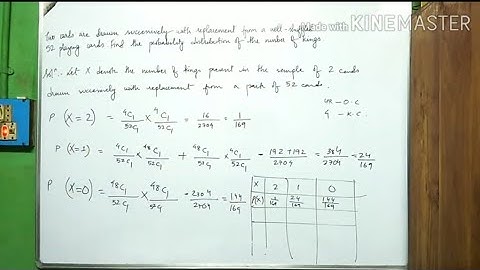 Made with KINEMASTER
Two cards are drawn successively with replacement from a well-shuffled
52 playing cards. Find the probability distribution of the number of kings
Solⁿ. Let X denote the number of kings present in the sample of 2 cards
drawn successively with replacement from a pack of 52 cards.
48 - O.C
4 - K.C.
P (X=2) = 4C1/52C1 × 4C1/52C1 = 16/2704 = 1/169
P (X=1) = 4C1/52C1 × 48C1/52C1 + 48C1/52C1 × 4C1/52C1 = 192+192/2704 = 384/2704 = 24/169
P (X=0) = 48C1/52C1 × 48C1/52C1 = 2304/2704 = 144/169
X 2 1 0
P(X) 1/169 24/169 144/169